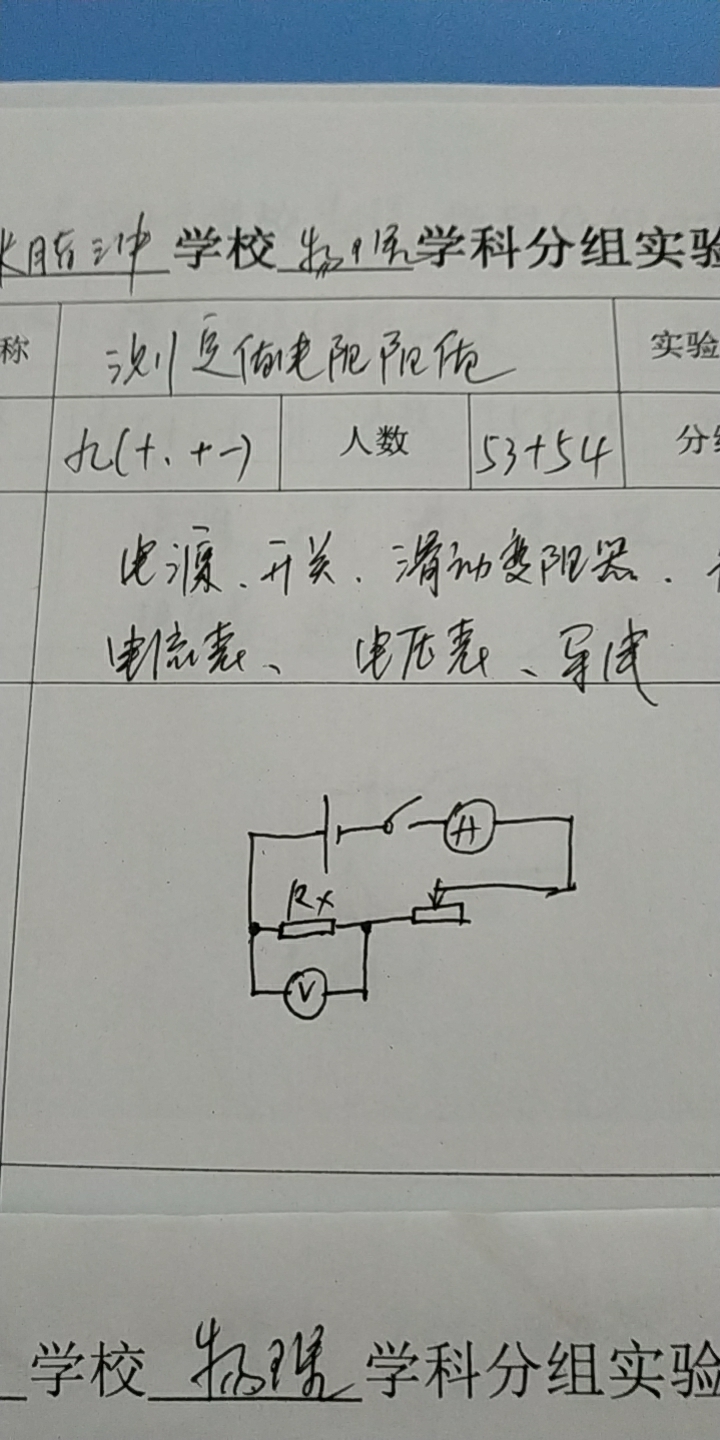 米脂三中学校物理学科分组实验
称 测定值电阻阻值 实验
九(十、十一) 人数 53+54 分组
电源、开关、滑动变阻器、
电流表、电压表、导线
A
Rx
V
学校物理学科分组实验